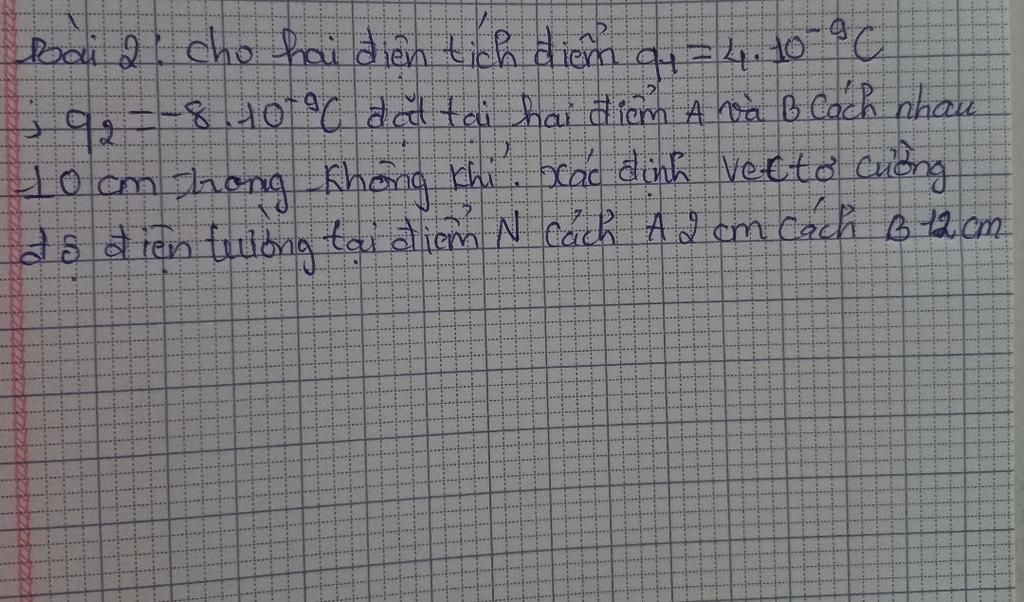 Bài 2: cho hai điện tích điểm q₁ = 4.10⁻⁹C
; q₂ = -8.10⁻⁹C đặt tại hai điểm A và B Cách nhau
10 cm trong không khí. xác định vectơ cường
độ điện trường tại điểm N Cách A 2 cm Cách B 12 cm